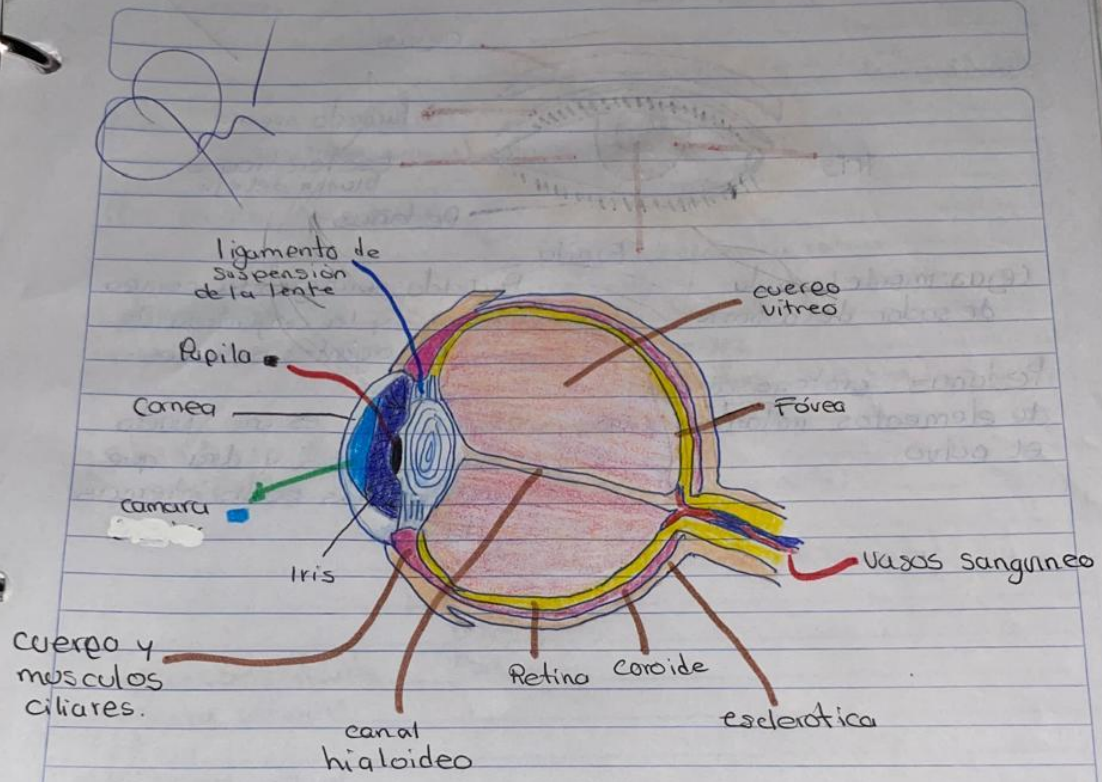 ligamento de
suspensión
de la lente
cuerpo
vitreo
Pupila
Cornea
Fóvea
camara
Iris
Vasos sanguineo
cuerpo y
musculos
ciliares.
Retina
coroide
esclerotica
canal
hialoideo